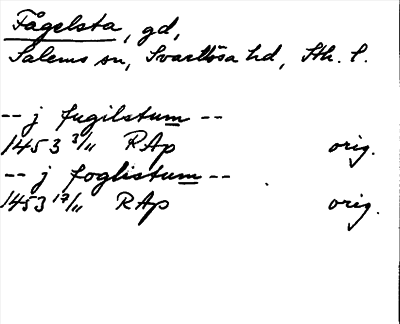 Fågelsta, gd,
Salems sn, Svartlösa hd, Sth. l.
-- j fugilstum --
1453 3/11 RAp orig.
-- j foglistum --
1453 17/11 RAp orig.